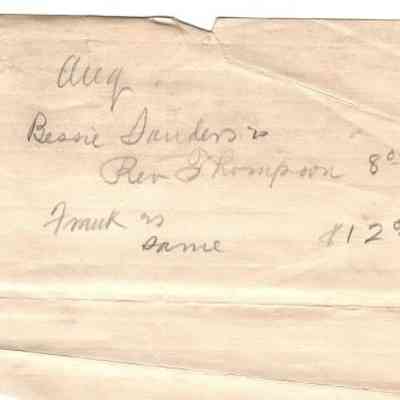 Aug
Bessie Sanders vs
Rev Thompson 8 00
Frank vs
same $12 0